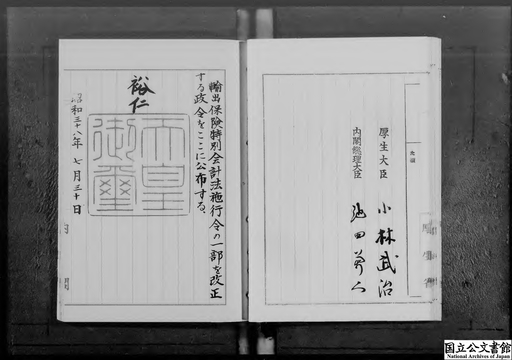 厚生大臣 小林武治
内閣総理大臣 池田勇人
輸出保険特別会計法施行令の一部を改正
する政令をここに公布する。
裕仁
天皇
御璽
昭和三十八年七月三十日
国立公文書館
National Archives of Japan